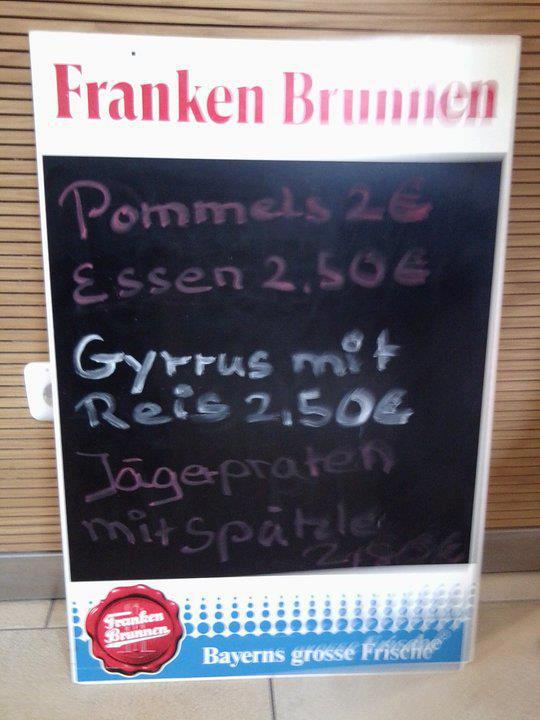 Franken Brunnen
Pommels 2€
Essen 2.50€
Gyrrus mit
Reis 2,50€
Jägerpraten
mit Spätzle
Franken
Brunnen
Bayerns grosse Frische